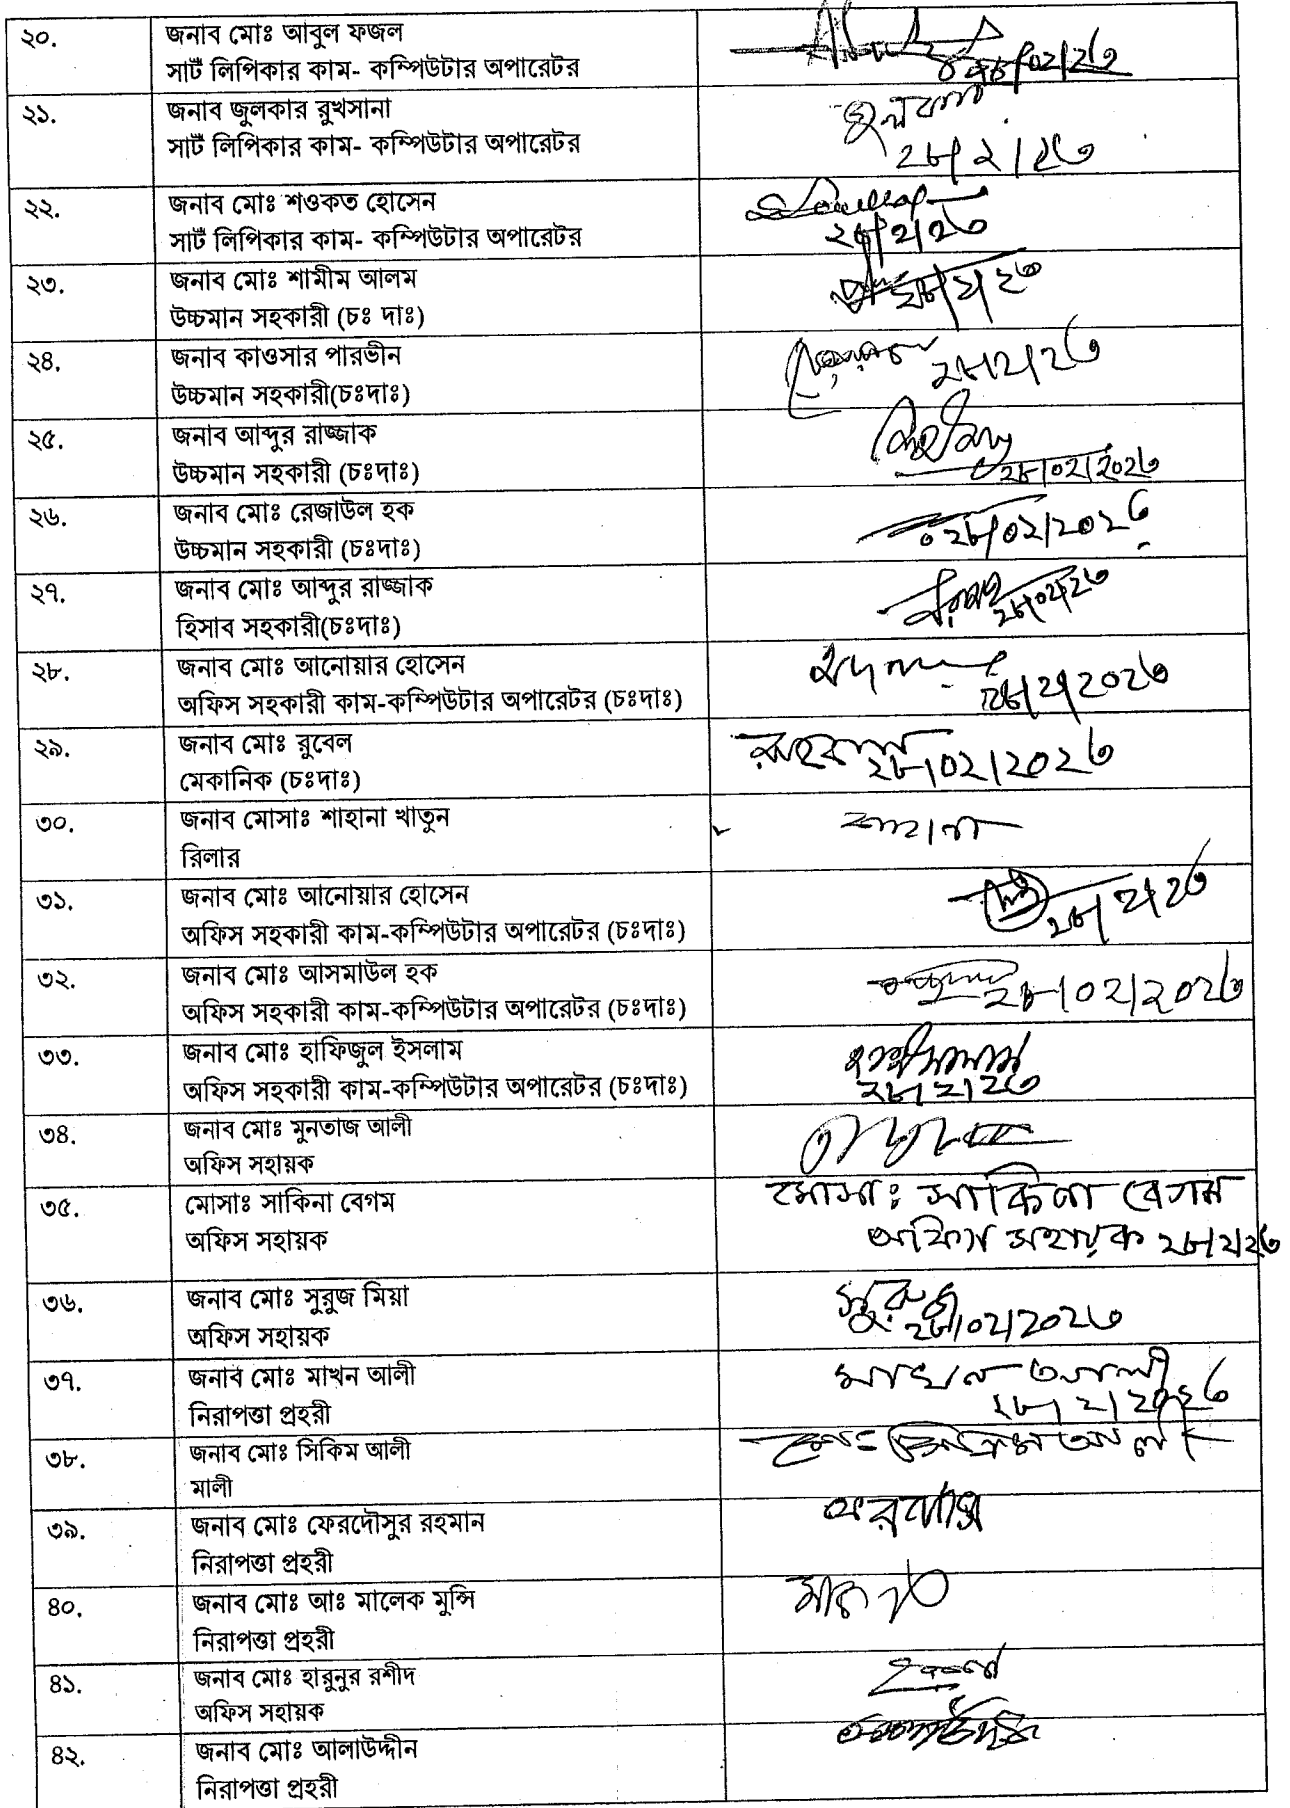 ২০. জনাব মোঃ আবুল ফজল
সার্ট লিপিকার কাম- কম্পিউটার অপারেটর
২৮/০২/২৩
২১. জনাব জুলকার রুখসানা
সার্ট লিপিকার কাম- কম্পিউটার অপারেটর
২৮/২/২৩
২২. জনাব মোঃ শওকত হোসেন
সার্ট লিপিকার কাম- কম্পিউটার অপারেটর
২৮/২/২৩
২৩. জনাব মোঃ শামীম আলম
উচ্চমান সহকারী (চঃ দাঃ)
২৮/২/২৩
২৪. জনাব কাওসার পারভীন
উচ্চমান সহকারী(চঃদাঃ)
২৮/২/২৩
২৫. জনাব আব্দুর রাজ্জাক
উচ্চমান সহকারী (চঃদাঃ)
২৮/০২/২০২৩
২৬. জনাব মোঃ রেজাউল হক
উচ্চমান সহকারী (চঃদাঃ)
২৮/০২/২০২৩
২৭. জনাব মোঃ আব্দুর রাজ্জাক
হিসাব সহকারী(চঃদাঃ)
২৮/০২/২৩
২৮. জনাব মোঃ আনোয়ার হোসেন
অফিস সহকারী কাম-কম্পিউটার অপারেটর (চঃদাঃ)
২৮/২/২০২৩
২৯. জনাব মোঃ রুবেল
মেকানিক (চঃদাঃ)
২৮/০২/২০২৩
৩০. জনাব মোসাঃ শাহানা খাতুন
রিলার
শাহানা
৩১. জনাব মোঃ আনোয়ার হোসেন
অফিস সহকারী কাম-কম্পিউটার অপারেটর (চঃদাঃ)
২৮/২/২৩
৩২. জনাব মোঃ আসমাউল হক
অফিস সহকারী কাম-কম্পিউটার অপারেটর (চঃদাঃ)
২৮/০২/২০২৩
৩৩. জনাব মোঃ হাফিজুল ইসলাম
অফিস সহকারী কাম-কম্পিউটার অপারেটর (চঃদাঃ)
২৮/২/২৩
৩৪. জনাব মোঃ মুনতাজ আলী
অফিস সহায়ক
৩৫. মোসাঃ সাকিনা বেগম
অফিস সহায়ক
মোসাঃ সাকিনা বেগম
অফিস সহায়ক ২৮/২/২৩
৩৬. জনাব মোঃ সুরুজ মিয়া
অফিস সহায়ক
সুরুজ
২৮/০২/২০২৩
৩৭. জনাব মোঃ মাখন আলী
নিরাপত্তা প্রহরী
মাখন আলী
২৮/২/২০২৩
৩৮. জনাব মোঃ সিকিম আলী
মালী
৩৯. জনাব মোঃ ফেরদৌসুর রহমান
নিরাপত্তা প্রহরী
৪০. জনাব মোঃ আঃ মালেক মুন্সি
নিরাপত্তা প্রহরী
৪১. জনাব মোঃ হারুনুর রশীদ
অফিস সহায়ক
৪২. জনাব মোঃ আলাউদ্দীন
নিরাপত্তা প্রহরী